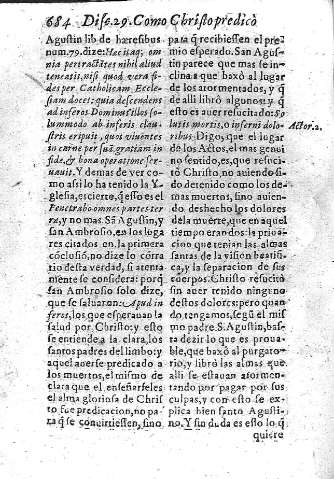 684 Disc.29. Como Christo predicò
Agustin lib de hæresibus
num.79. dize: Hæc itaq; om
nia pertractãtes nihil aliud
teneatis, nisi quod vera fi-
des per Catholicam Eccle-
siam docet: quia descendens
ad inferos Dominus illos so-
lummodo ab inferis clau-
stris eripuit, quos viuentes
in carne per suã gratiam in
fide, & bona operatione ser-
uauit. Y demas de ver co-
mo assi lo ha tenido la Y-
glesia, es cierto, q̃ esso es el
omnes partes ter-
ra, y no mas. S. Agustin, y
san Ambrosio, en los luga
res citados en la primera
cõclusiõ, no dize lo cõtra
rio desta verdad, si atenta
mente se considera: porq̃
san Ambrosio solo dize,
que se saluaran: Apud in
feros, los que esperauan la
salud por Christo: y esto
se entiende a la clara, los
santos padres del limbo: y
aquel auerse predicado a
los muertos, el mismo de
clara que el enseñarseles
el alma gloriosa de Chris
to fue predicacion, no pa
ra q̃ se conuirtiessen, sino
para q̃ recibiessen el pre
mio esperado. San Agus-
tin parece que mas se in-
clina a que baxò al lugar
de los atormentados, y q̃
de alli librò algunos: y q̃
esto es auer resucitado: So
lutis mortis, o inferni dolo
ribus. Digo, que el lugar
de los Actos, el mas genui
no sentido, es, que resuci-
tò Christo, no auiendo si-
do detenido como los de-
mas muertos, sino auien-
do deshecho los dolores
de la muerte, que en aquel
tiempo eran dos: la priua
cion que tenian las almas
santas de la vision beatifi-
ca, y la separacion de sus
cuerpos. Christo resucitò
sin auer tenido ninguno
destos dolores: pero quan
do tengamos, segũ el mis
mo padre S. Agustin, bas-
ta dezir lo que es proua-
ble, que baxò al purgato-
rio, y librò las almas que
alli se estauan atormen-
tando por pagar por sus
culpas, y con esto se ex-
plica bien santo Agusti-
no. Y sin duda es esto lo q̃
quiere
Actor.2.